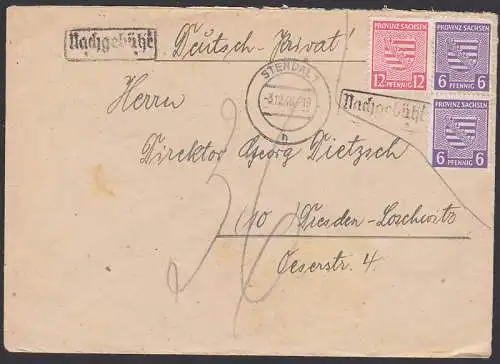 Nachgebühr
Deutsch-Privat!
PROVINZ SACHSEN
12 12
PFENNIG
PROVINZ SACHSEN
6 6
PFENNIG
STENDAL
h
Nachgebühr
PROVINZ SACHSEN
6 6
PFENNIG
Herrn
Direktor Georg Dietzsch
(10) Dresden-Loschwitz
Oeserstr. 4.